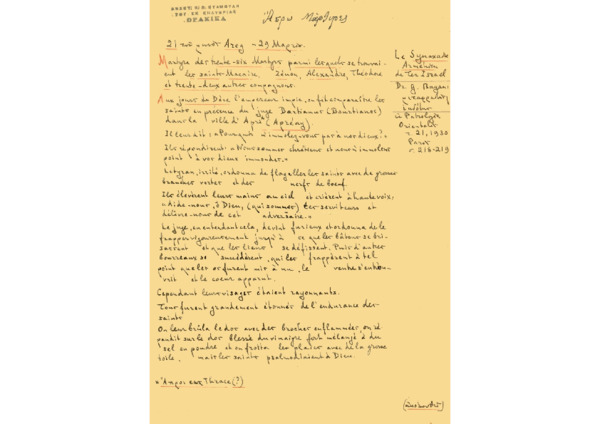 21 τοῦ μηνὸς Areg - 29 Μαρτίου.
Martyre des trente-six Martyrs parmi lesquels se trouvai-
ent les saints Macaire, Zénon, Alexandre, Théodore
et trente-deux autres compagnons.
Aux jours de Dèce l'empereur impie, on fit comparaître les
saints en présence du juge Bastianus (Doustianus)
dans la ville d'Apré (Apréay).
Il leur dit: «Pourquoi n'immolez-vous pas à nos dieux?»
Ils répondirent: «Nous sommes chrétiens et nous n'immolons
point à vos dieux immondes.»
Le tyran, irrité, ordonna de flageller les saints avec de grosses
branches vertes et des nerfs de boeuf.
Ils élevèrent leurs mains au ciel et crièrent à haute voix:
«Aide-nous, ô Dieu, (qui sommes) tes serviteurs et
délivre-nous de cet adversaire.»
Le juge, en entendant cela, devint furieux et ordonna de les
frapper vigoureusement jusqu'à ce que les bâtons se bri-
sassent et que les liens se défissent. Puis d'autres
bourreaux se succédèrent, qui les frappèrent à tel
point que les os furent mis à nu, le ventre s'entrou-
vrit et le coeur apparut.
Cependant leurs visages étaient rayonnants.
Tous furent grandement étonnés de l'endurance des
saints
On leur brûla le dos avec des broches enflammées, on ré-
pandit sur le dos blessé du vinaigre fort mélangé à du
sel en poudre et on frotta les plaies avec de la grosse
toile, mais les saints psalmodiaient à Dieu.
Thrace (?)
Le Synaxaire
Arménien
de Ter Israel
Dr. G. Bayan
Patrologia
Orientalis
τ. 21, 1930
Paris
σ. 216-219